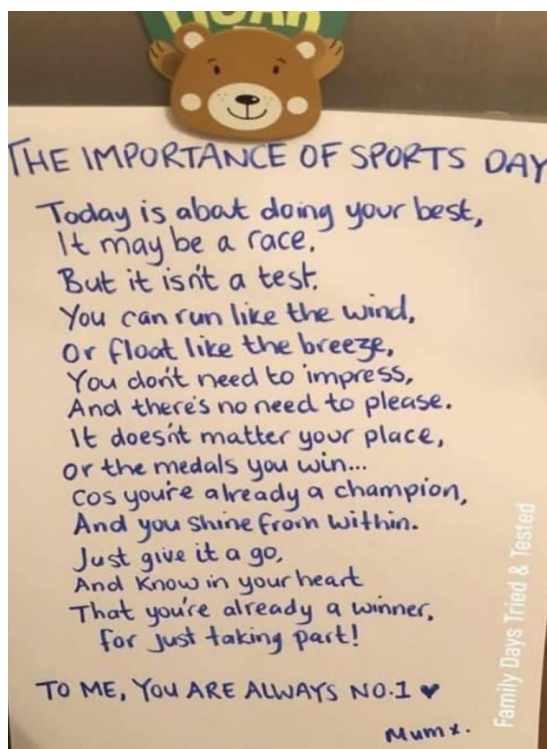 THE IMPORTANCE OF SPORTS DAY
Today is about doing your best,
It may be a race,
But it isn't a test.
You can run like the wind,
Or float like the breeze,
You don't need to impress,
And there's no need to please.
It doesn't matter your place,
or the medals you win...
Cos you're already a champion,
And you shine from within.
Just give it a go,
And know in your heart
That you're already a winner,
for just taking part!
TO ME, YOU ARE ALWAYS NO.1 ♥
Mum x.
Family Days Tried & Tested